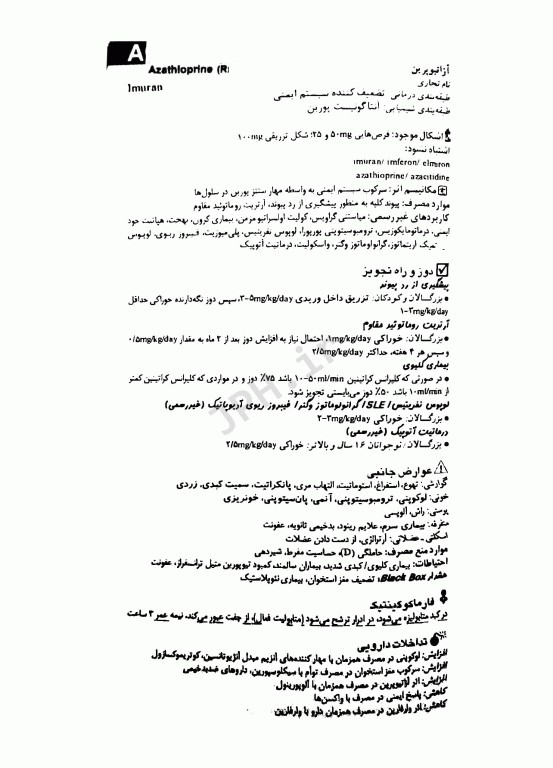 A
Azathioprine (R)
آزاتیوپرین
Imuran
نام تجاری
طبقه‌بندی درمانی: تضعیف کننده سیستم ایمنی
طبقه‌بندی شیمیایی: آنتاگونیست پورین
اشکال موجود: قرص‌هایی ۵۰mg و ۲۵؛ شکل تزریقی ۱۰۰mg
اشتباه نشود:
imuran/ imferon/ elmiron
azathioprine/ azacitidine
مکانیسم اثر: سرکوب سیستم ایمنی به واسطه مهار سنتز پورین در سلول‌ها
موارد مصرف: پیوند کلیه به منظور پیشگیری از رد پیوند، آرتریت روماتوئید مقاوم
کاربردهای غیررسمی: میاستنی گراویس، کولیت اولسراتیو مزمن، بیماری کرون، بهجت، هپاتیت خود
ایمنی، درماتومایکوزیس، ترومبوسیتوپنی پورپورا، لوپوس نفریتیس، پلی‌میوزیت، فیبروز ریوی، لوپوس
اریتماتوز، گرانولوماتوز وگنر، واسکولیت، درماتیت آتوپیک
دوز و راه تجویز
پیشگیری از رد پیوند
● بزرگسالان و کودکان: تزریق داخل وریدی ۳-۵mg/kg/day، سپس دوز نگه‌دارنده خوراکی حداقل
۱-۳mg/kg/day
آرتریت روماتوئید مقاوم
● بزرگسالان: خوراکی ۱mg/kg/day، احتمال نیاز به افزایش دوز بعد از ۲ ماه به مقدار ۰/۵mg/kg/day
و سپس هر ۴ هفته، حداکثر ۲/۵mg/kg/day
بیماری کلیوی
● در صورتی که کلیرانس کراتینین ۱۰-۵۰ml/min باشد ۷۵٪ دوز و در مواردی که کلیرانس کراتینین کمتر
از ۱۰ml/min باشد ۵۰٪ دوز می‌بایستی تجویز شود.
لوپوس نفریتیس/ SLE/ گرانولوماتوز وگنر/ فیبروز ریوی آدیوپاتیک (غیررسمی)
● بزرگسالان: خوراکی ۲-۳mg/kg/day
درماتیت آتوپیک (غیررسمی)
● بزرگسالان/ نوجوانان ۱۶ سال و بالاتر: خوراکی ۲/۵mg/kg/day
عوارض جانبی
گوارشی: تهوع، استفراغ، استوماتیت، التهاب مری، پانکراتیت، سمیت کبدی، زردی
خونی: لوکوپنی، ترومبوسیتوپنی، آنمی، پان‌سیتوپنی، خونریزی
پوستی: راش، آلوپسی
متفرقه: بیماری سرم، علایم رینود، بدخیمی ثانویه، عفونت
اسکلتی ـ عضلانی: آرترالژی، از دست دادن عضلات
موارد منع مصرف: حاملگی (D)، حساسیت مفرط، شیردهی
احتیاطات: بیماری کلیوی/ کبدی شدید، بیماران سالمند، کمبود تیوپورین متیل ترانسفراز، عفونت
هشدار Black Box: تضعیف مغز استخوان، بیماری نئوپلاستیک
فارماکوکینتیک
در کبد متابولیزه می‌شود، در ادرار ترشح می‌شود (متابولیت فعال)، از جفت عبور می‌کند. نیمه عمر ۳ ساعت
تداخلات دارویی
افزایش: لوکوپنی در مصرف همزمان با مهار کننده‌های آنزیم مبدل آنژیوتانسین، کوتریموکسازول
افزایش: سرکوب مغز استخوان در مصرف توأم با سیکلوسپورین، داروهای ضدبدخیمی
افزایش: اثر آزاتیوپرین در مصرف همزمان با آلوپورینول
کاهش: پاسخ ایمنی در مصرف با واکسن‌ها
کاهش: اثر وارفارین در مصرف همزمان دارو با وارفارین